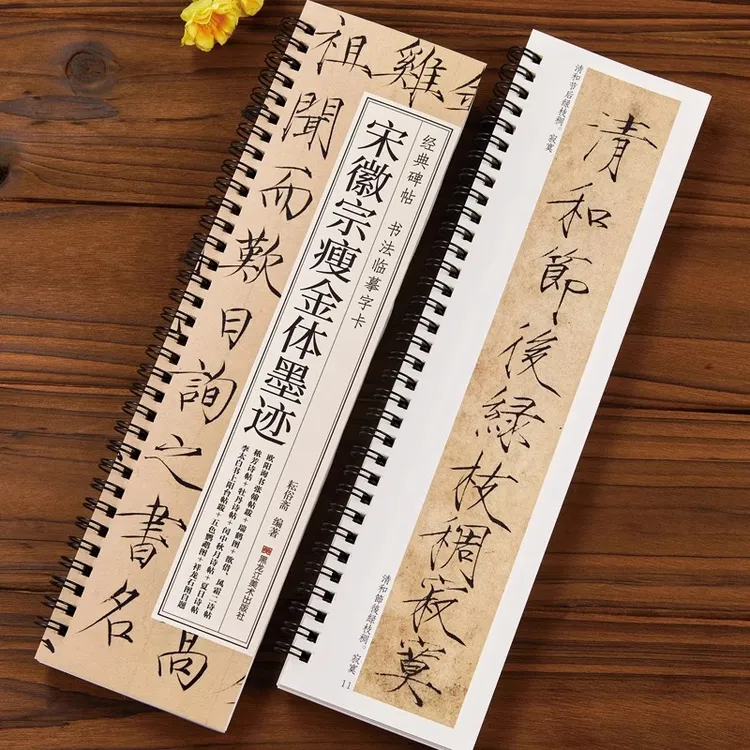 雞
祖聞而歎日詢之書名
高
经典碑帖 书法临摹字卡
宋徽宗瘦金体墨迹
欧阳询书张翰帖跋+瑞鹤图+欲借、风霜二诗帖
秾芳诗帖+牡丹诗帖+闰中秋月诗帖+夏日诗帖
李太白书上阳台帖跋+五色鹦鹉图+祥龙石图自题
耘俗斋 编著
黑龙江美术出版社
清和节后绿枝稠。寂寞
清和節後緑枝稠寂寞
清和節後綠枝稠。寂寞
11